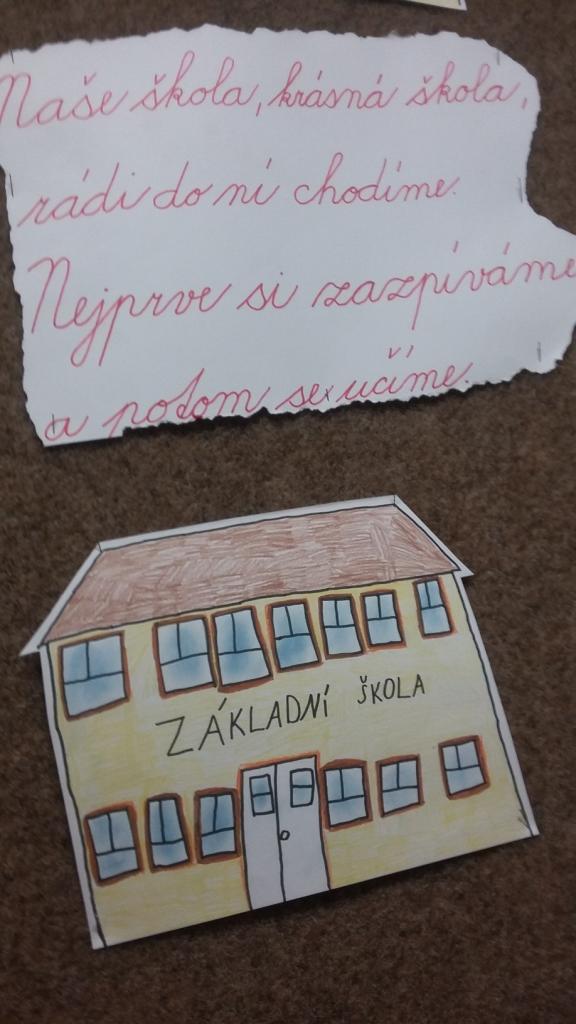 Naše škola, krásná škola,
rádi do ní chodíme.
Nejprve si zazpíváme
a potom se učíme.
ZÁKLADNÍ ŠKOLA